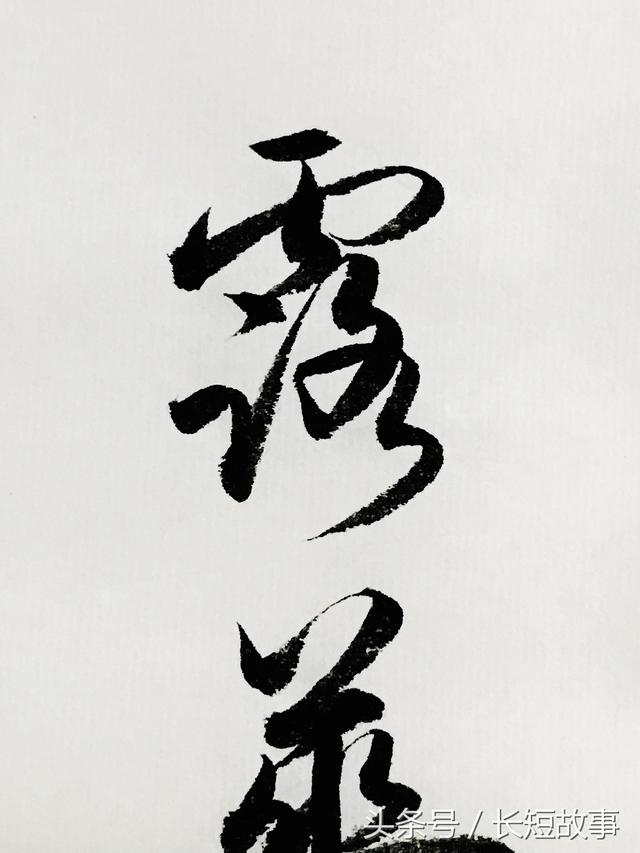 露
头条号 / 长短故事